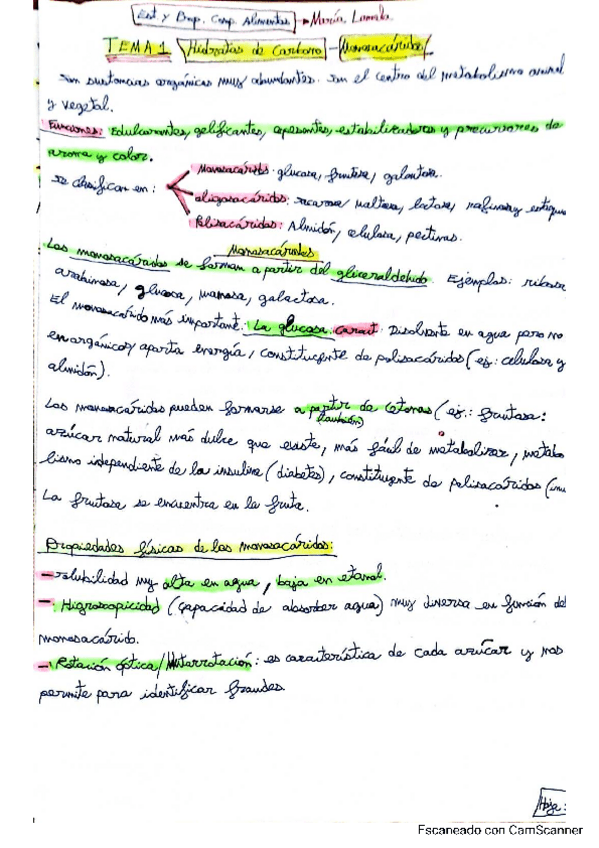 Est y Prop. Comp. Alimentos → María Lamela
TEMA 1 Hidratos de Carbono - Monosacáridos
Son sustancias orgánicas muy abundantes. Son el centro del metabolismo animal
y vegetal.
Funciones: Edulcorantes, gelificantes, espesantes, estabilizadores y precursores de
aroma y color.
Se clasifican en:
Monosacáridos: glucosa, fructosa, galactosa.
oligosacáridos: sacarosa, maltosa, lactosa, rafinosa y estaquio
Polisacáridos: Almidón, celulosa, pectinas.
Monosacáridos
Los monosacáridos se forman a partir del gliceraldehído. Ejemplos: ribosa
arabinosa, glucosa, manosa, galactosa.
El monosacárido más importante: La glucosa. Caract: Disolvente en agua pero no
en orgánicos y aporta energía, constituyente de polisacáridos (ej: celulosa y
almidón).
Los monosacáridos pueden formarse a partir de cetonas (ej.: fructosa:
(también)
azúcar natural más dulce que existe, más fácil de metabolizar, metabo
lismo independiente de la insulina (diabetes), constituyente de polisacáridos (inu
La fructosa se encuentra en la fruta.
Propiedades físicas de los monosacáridos:
- Solubilidad muy alta en agua, baja en etanol.
- Higroscopicidad (capacidad de absorber agua) muy diversa en función del
monosacárido.
- Rotación óptica/Mutarrotación: es característica de cada azúcar y nos
permite para identificar fraudes.
Hoja:
Escaneado con CamScanner